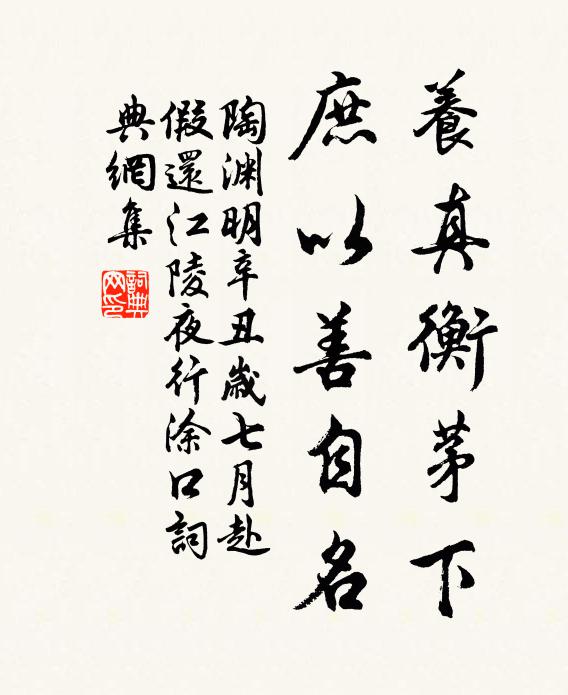 養真衡茅下
庶以善自名
陶淵明辛丑歲七月赴
假還江陵夜行涂口詞
典網集
詞典
网印